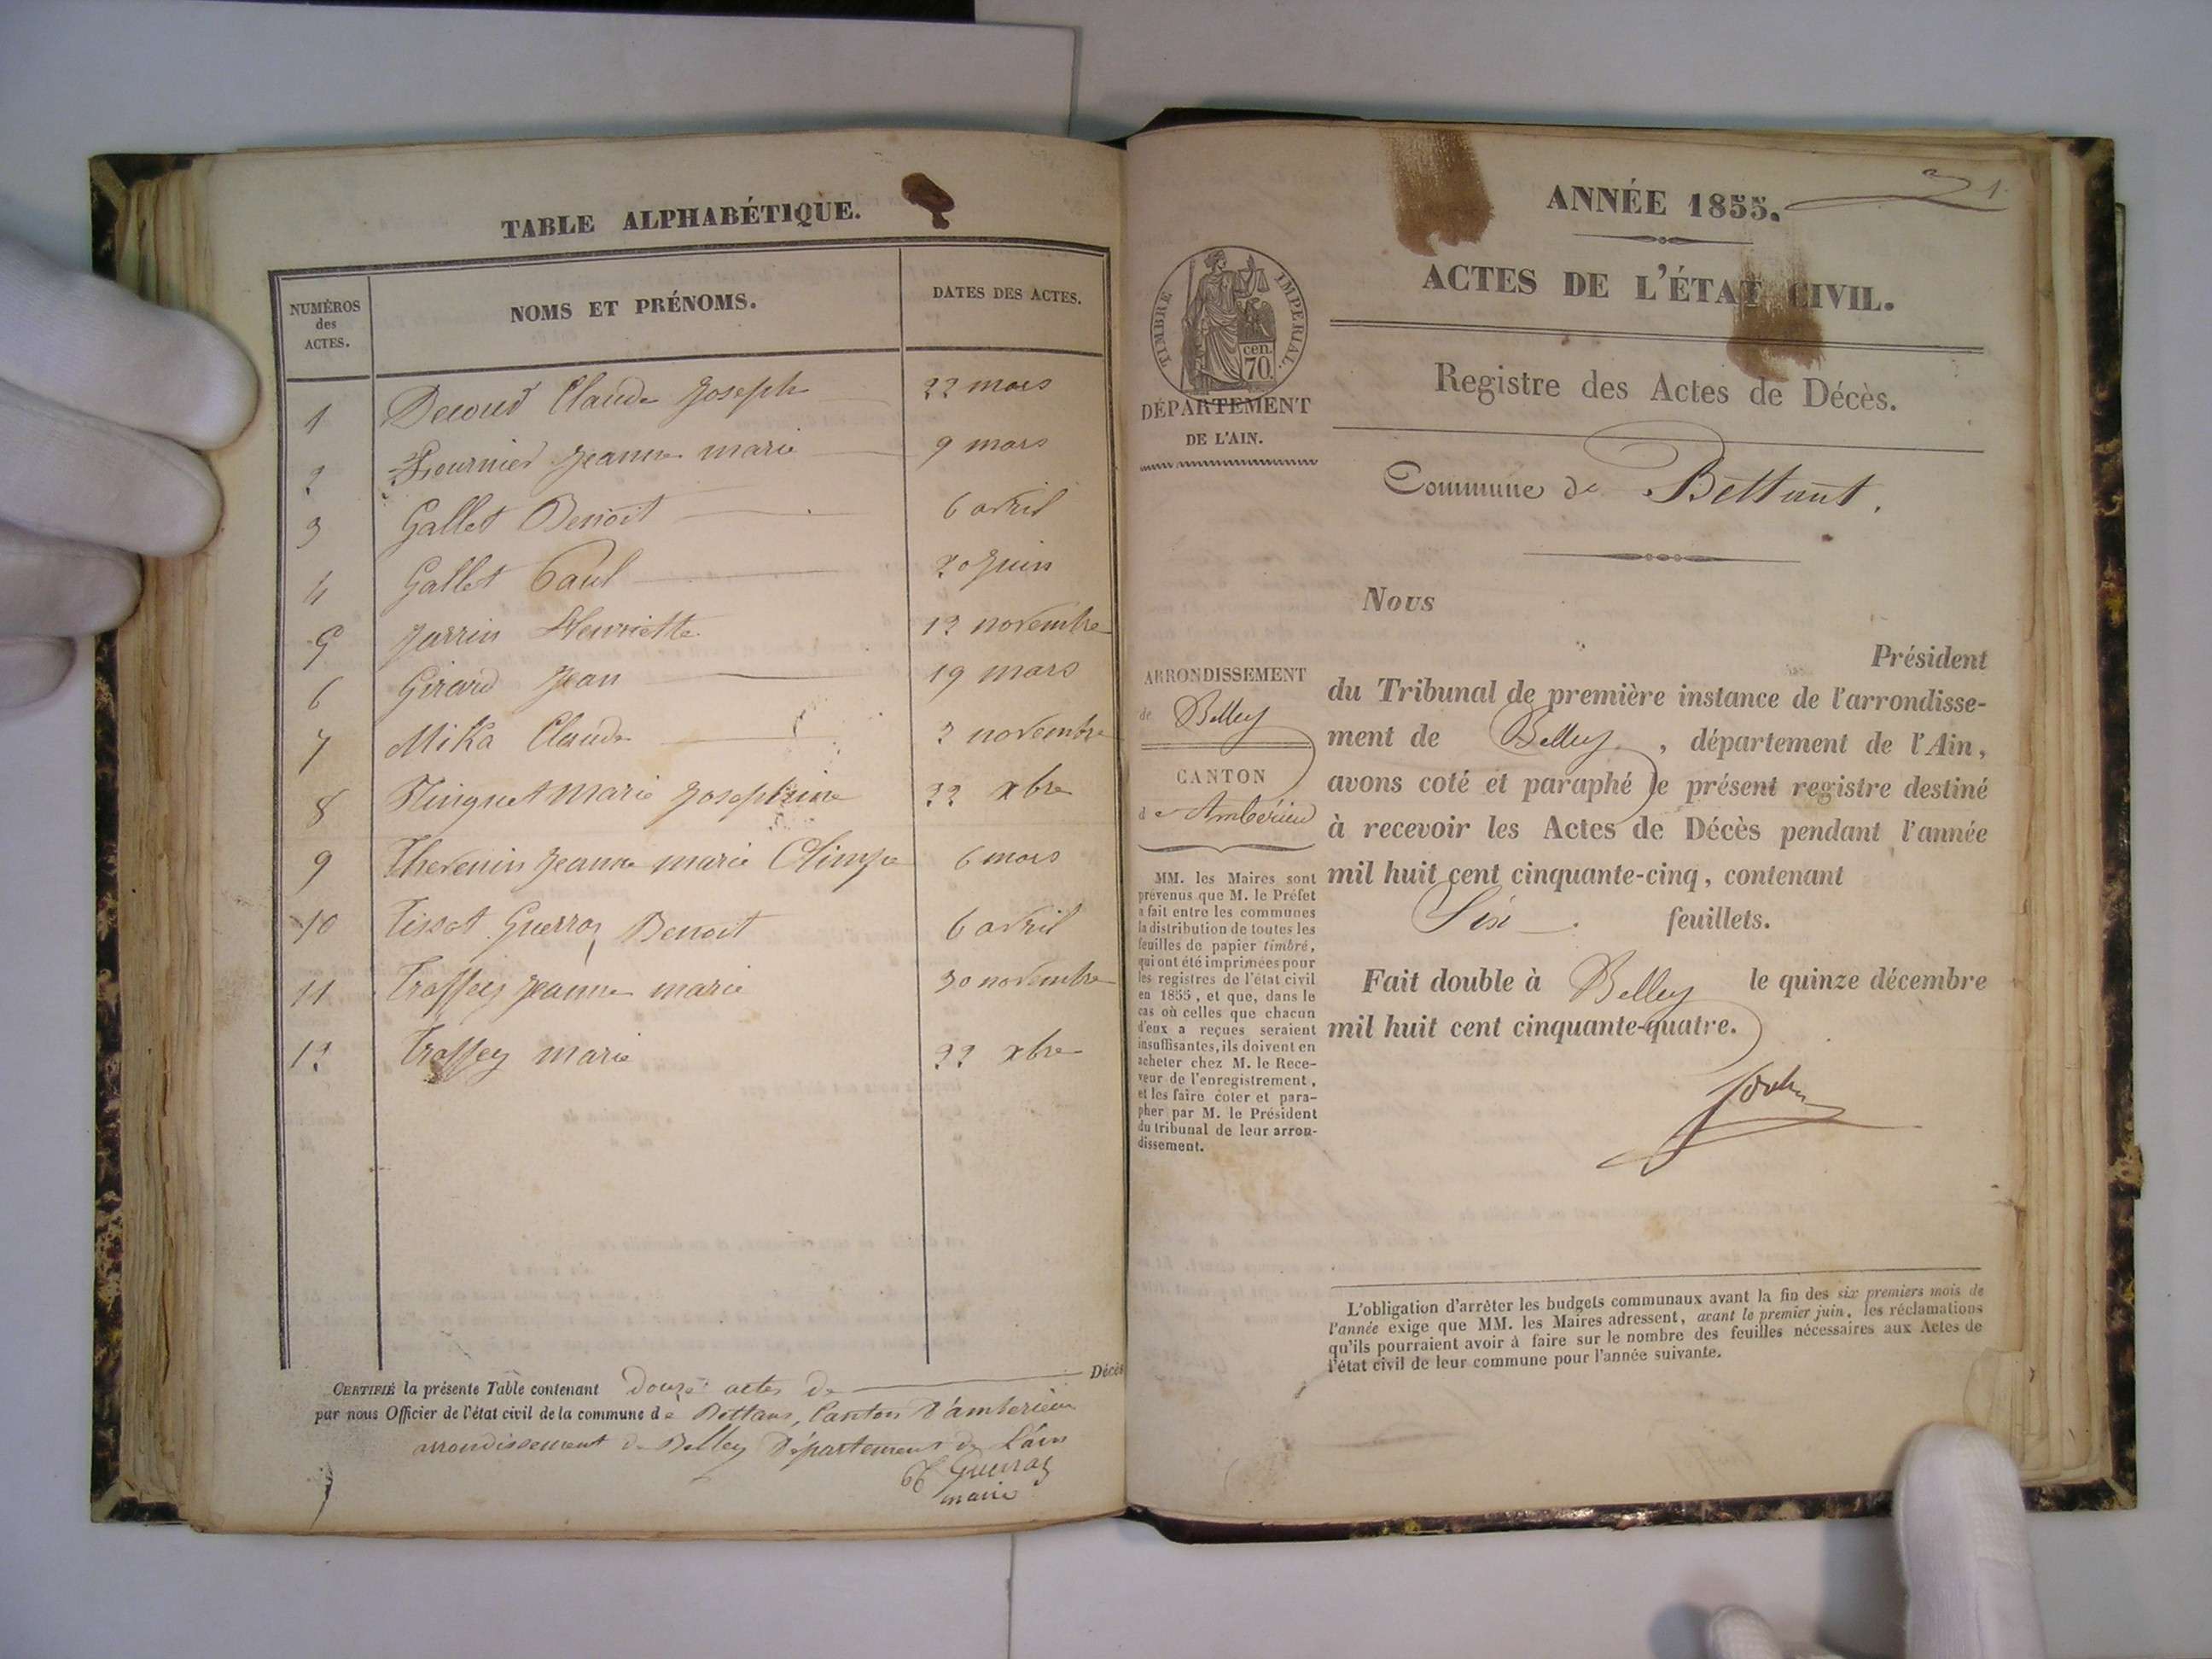 TABLE ALPHABÉTIQUE.
NUMÉROS des ACTES. NOMS ET PRÉNOMS. DATES DES ACTES.
1 Claude Joseph 22 mars
2 Fournier Jeanne marie 9 mars
3 Gallet Benoit 6 avril
4 Gallet Paul 20 Juin
5 Jarrin Henriette 12 novembre
6 Girard Jean 19 mars
7 Mika Claude 2 novembre
8 marie Josephine 22 xbre
9 Thevenin Jeanne marie Olimpe 6 mars
10 Tissot Guerraz Benoit 6 avril
11 Traffey Jeanne marie 30 novembre
12 Traffey marie 22 xbre
CERTIFIÉ la présente Table contenant douze actes de Décès
par nous Officier de l'état civil de la commune de Bettans, Canton d'amberieu
arrondissement de Belley Département de L'ain
Guerraz
maire
1.
ANNÉE 1855.
ACTES DE L'ÉTAT CIVIL.
TIMBRE IMPERIAL.
cen.
70
DÉPARTEMENT
DE L'AIN.
Registre des Actes de Décès.
Commune de Bettant.
Nous
Président
du Tribunal de première instance de l'arrondisse-
ment de Belley, département de l'Ain,
avons coté et paraphé le présent registre destiné
à recevoir les Actes de Décès pendant l'année
mil huit cent cinquante-cinq, contenant
Six feuillets.
Fait double à Belley le quinze décembre
mil huit cent cinquante-quatre.
ARRONDISSEMENT
de Belley
CANTON
d'e Ambérieu
MM. les Maires sont
prévenus que M. le Préfet
a fait entre les communes
la distribution de toutes les
feuilles de papier timbré,
qui ont été imprimées pour
les registres de l'état civil
en 1855, et que, dans le
cas où celles que chacun
d'eux a reçues seraient
insuffisantes, ils doivent en
acheter chez M. le Rece-
veur de l'enregistrement,
et les faire coter et para-
pher par M. le Président
du tribunal de leur arron-
dissement.
L'obligation d'arrêter les budgets communaux avant la fin des six premiers mois de
l'année exige que MM. les Maires adressent, avant le premier juin, les réclamations
qu'ils pourraient avoir à faire sur le nombre des feuilles nécessaires aux Actes de
l'état civil de leur commune pour l'année suivante.